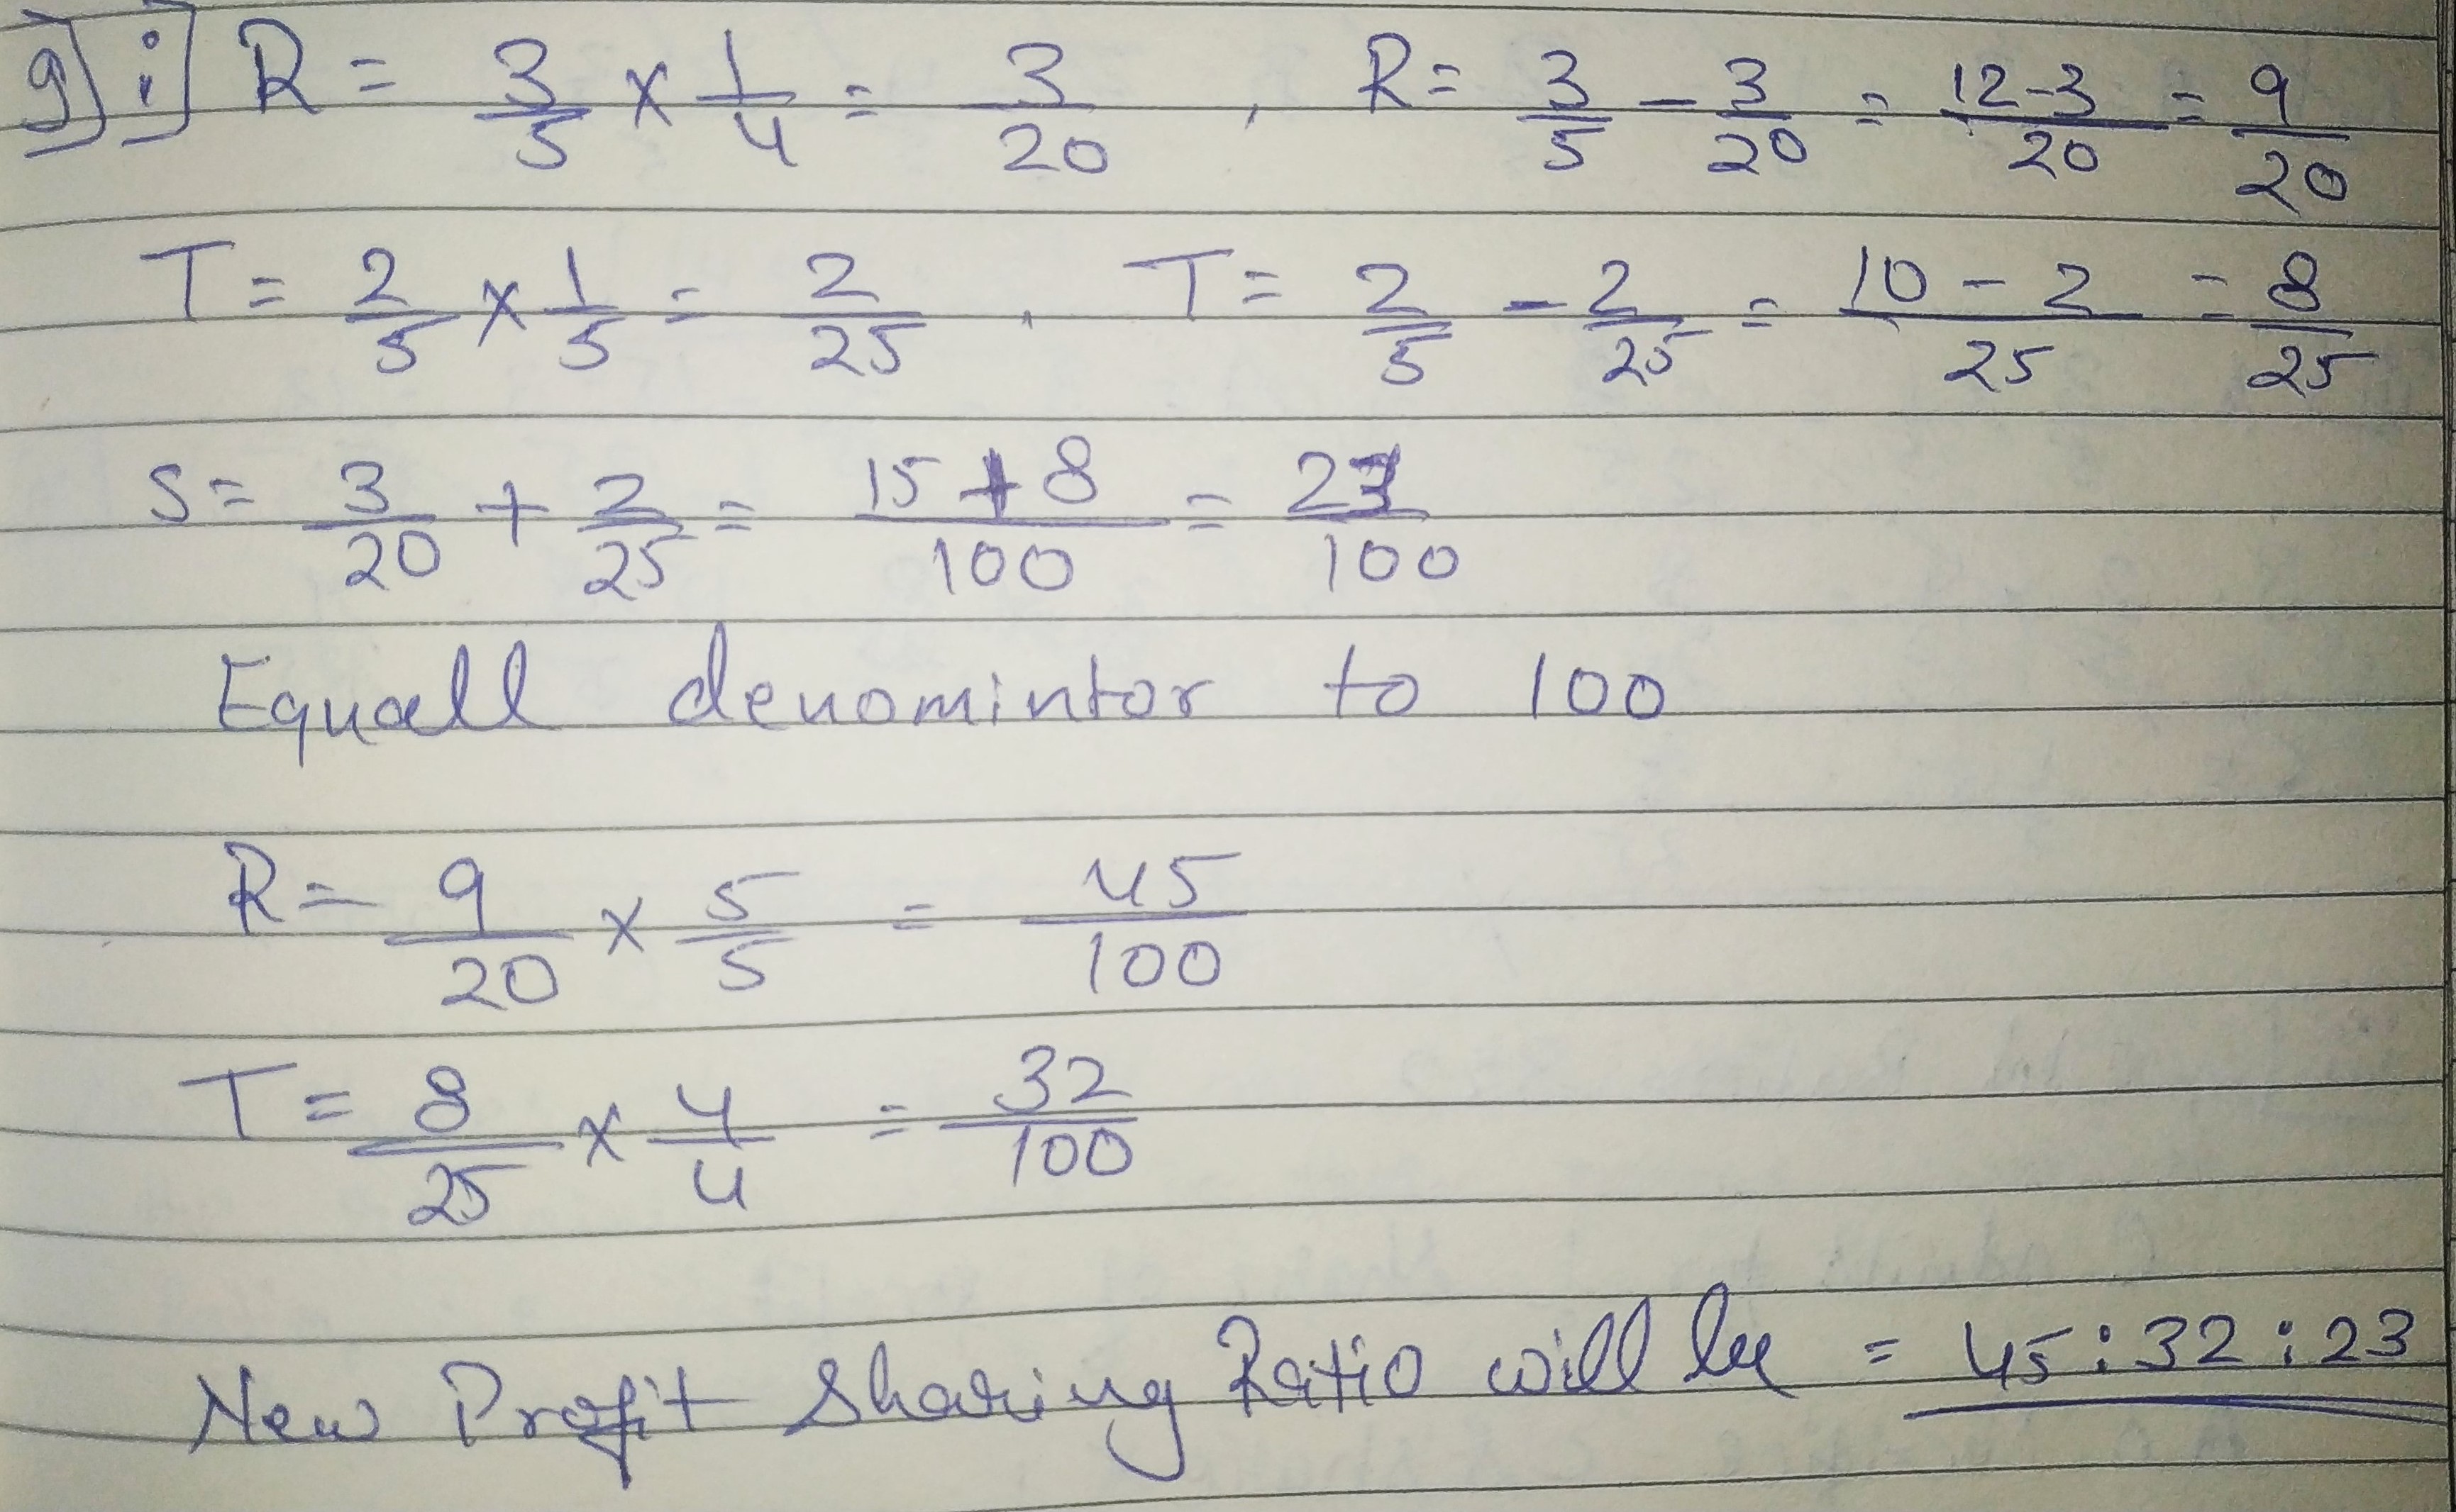 9] i] R = 3/5 × 1/4 = 3/20 , R = 3/5 - 3/20 = 12-3/20 = 9/20
T = 2/5 × 1/5 = 2/25 , T = 2/5 - 2/25 = 10-2/25 = 8/25
S = 3/20 + 2/25 = 15+8/100 = 23/100
Equall denomintor to 100
R = 9/20 × 5/5 = 45/100
T = 8/25 × 4/4 = 32/100
New Profit Sharing Ratio will be = 45:32:23